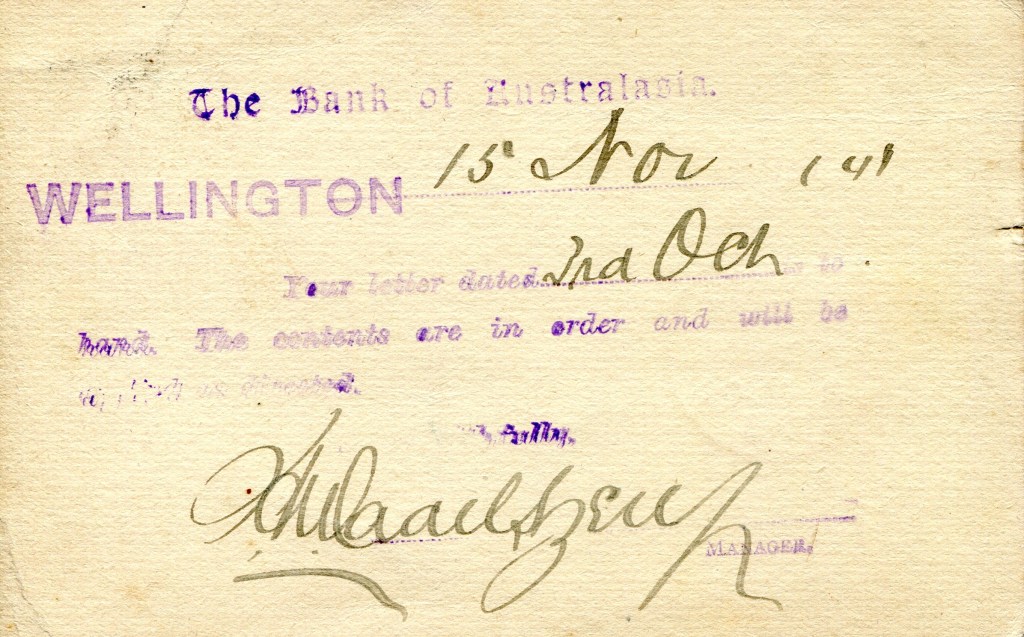 The Bank of Australasia.
WELLINGTON 15 Nov 141
Your letter dated 2nd Oct is to
hand. The contents are in order and will be
applied as directed.
fully,
MANAGER.